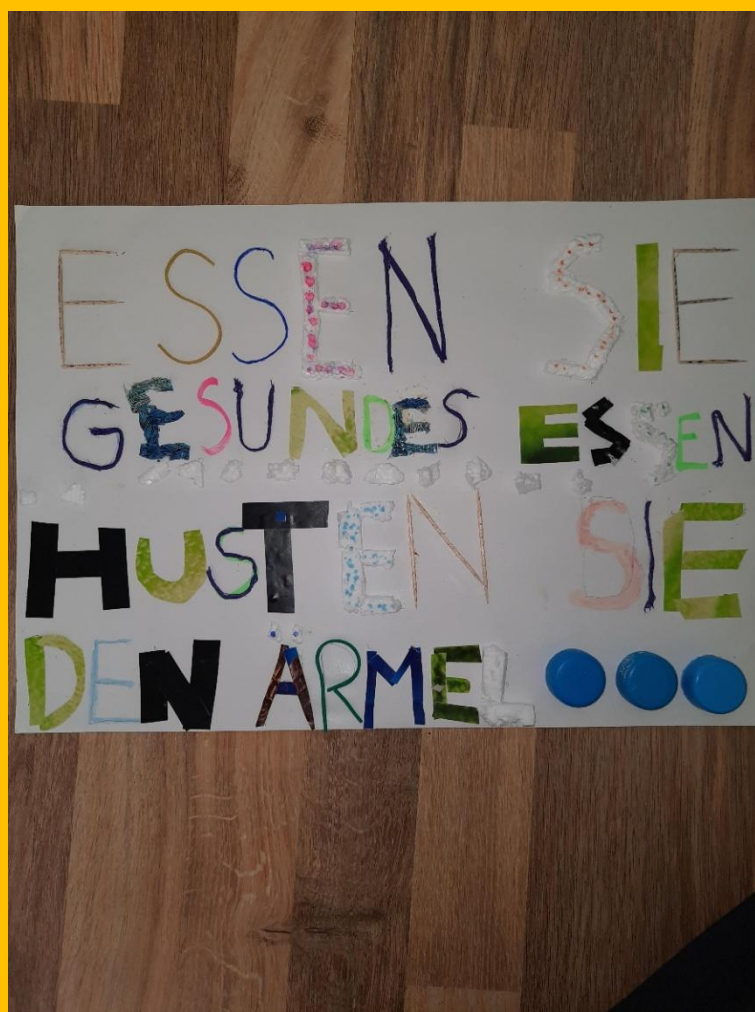 ESSEN SIE
GESUNDES ESSEN
HUSTEN SIE
DEN ÄRMEL